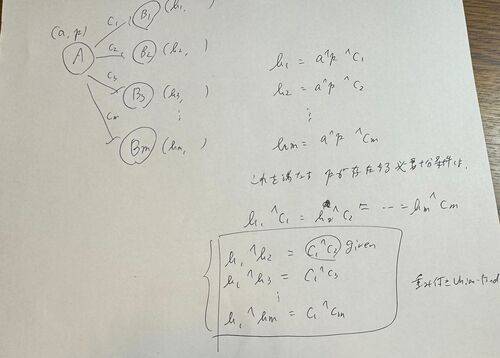 (a, p)
A
C₁
B₁ (h₁, )
C₂
B₂ (h₂, )
C₃
B₃ (h₃, )
⋮
Cm
Bm (hm, )
h₁ = a^p^C₁
h₂ = a^p^C₂
⋮
hm = a^p^Cm
これを満たす pが存在する必要十分条件は、
h₁^C₁ = h₂^C₂ = … = hm^Cm
h₁^h₂ = C₁^C₂ given
h₁^h₃ = C₁^C₃
⋮
h₁^hm = C₁^Cm
重み付き Union-Find